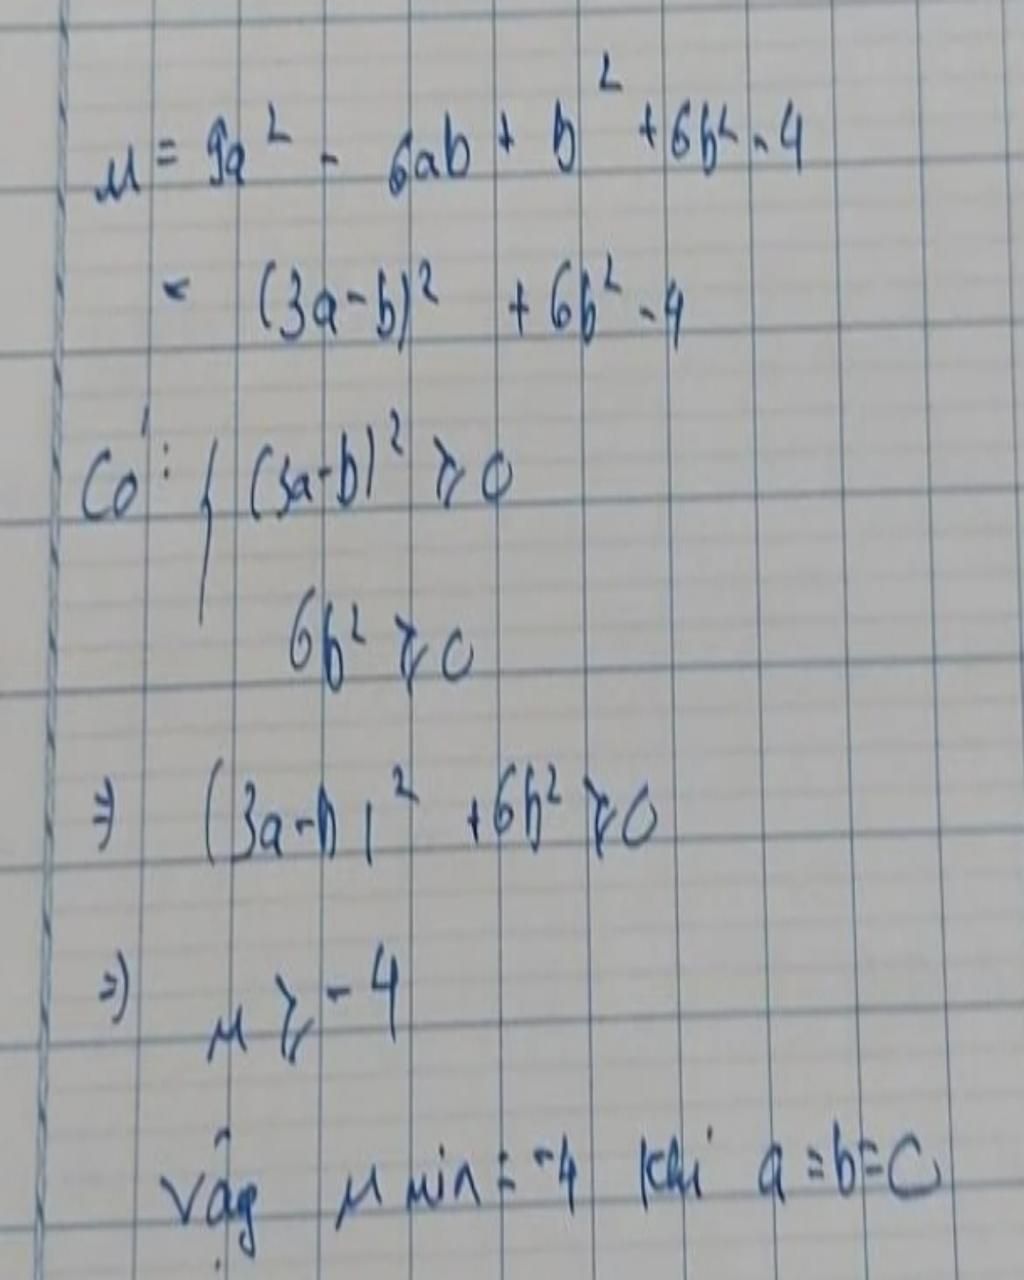 M = 9a² - 6ab + b² + 6b² - 4
= (3a-b)² + 6b² - 4
Có: { (3a-b)² ≥ 0
6b² ≥ 0
=> (3a-b)² + 6b² ≥ 0
=> M ≥ -4
Vậy M min = -4 khi a = b = 0